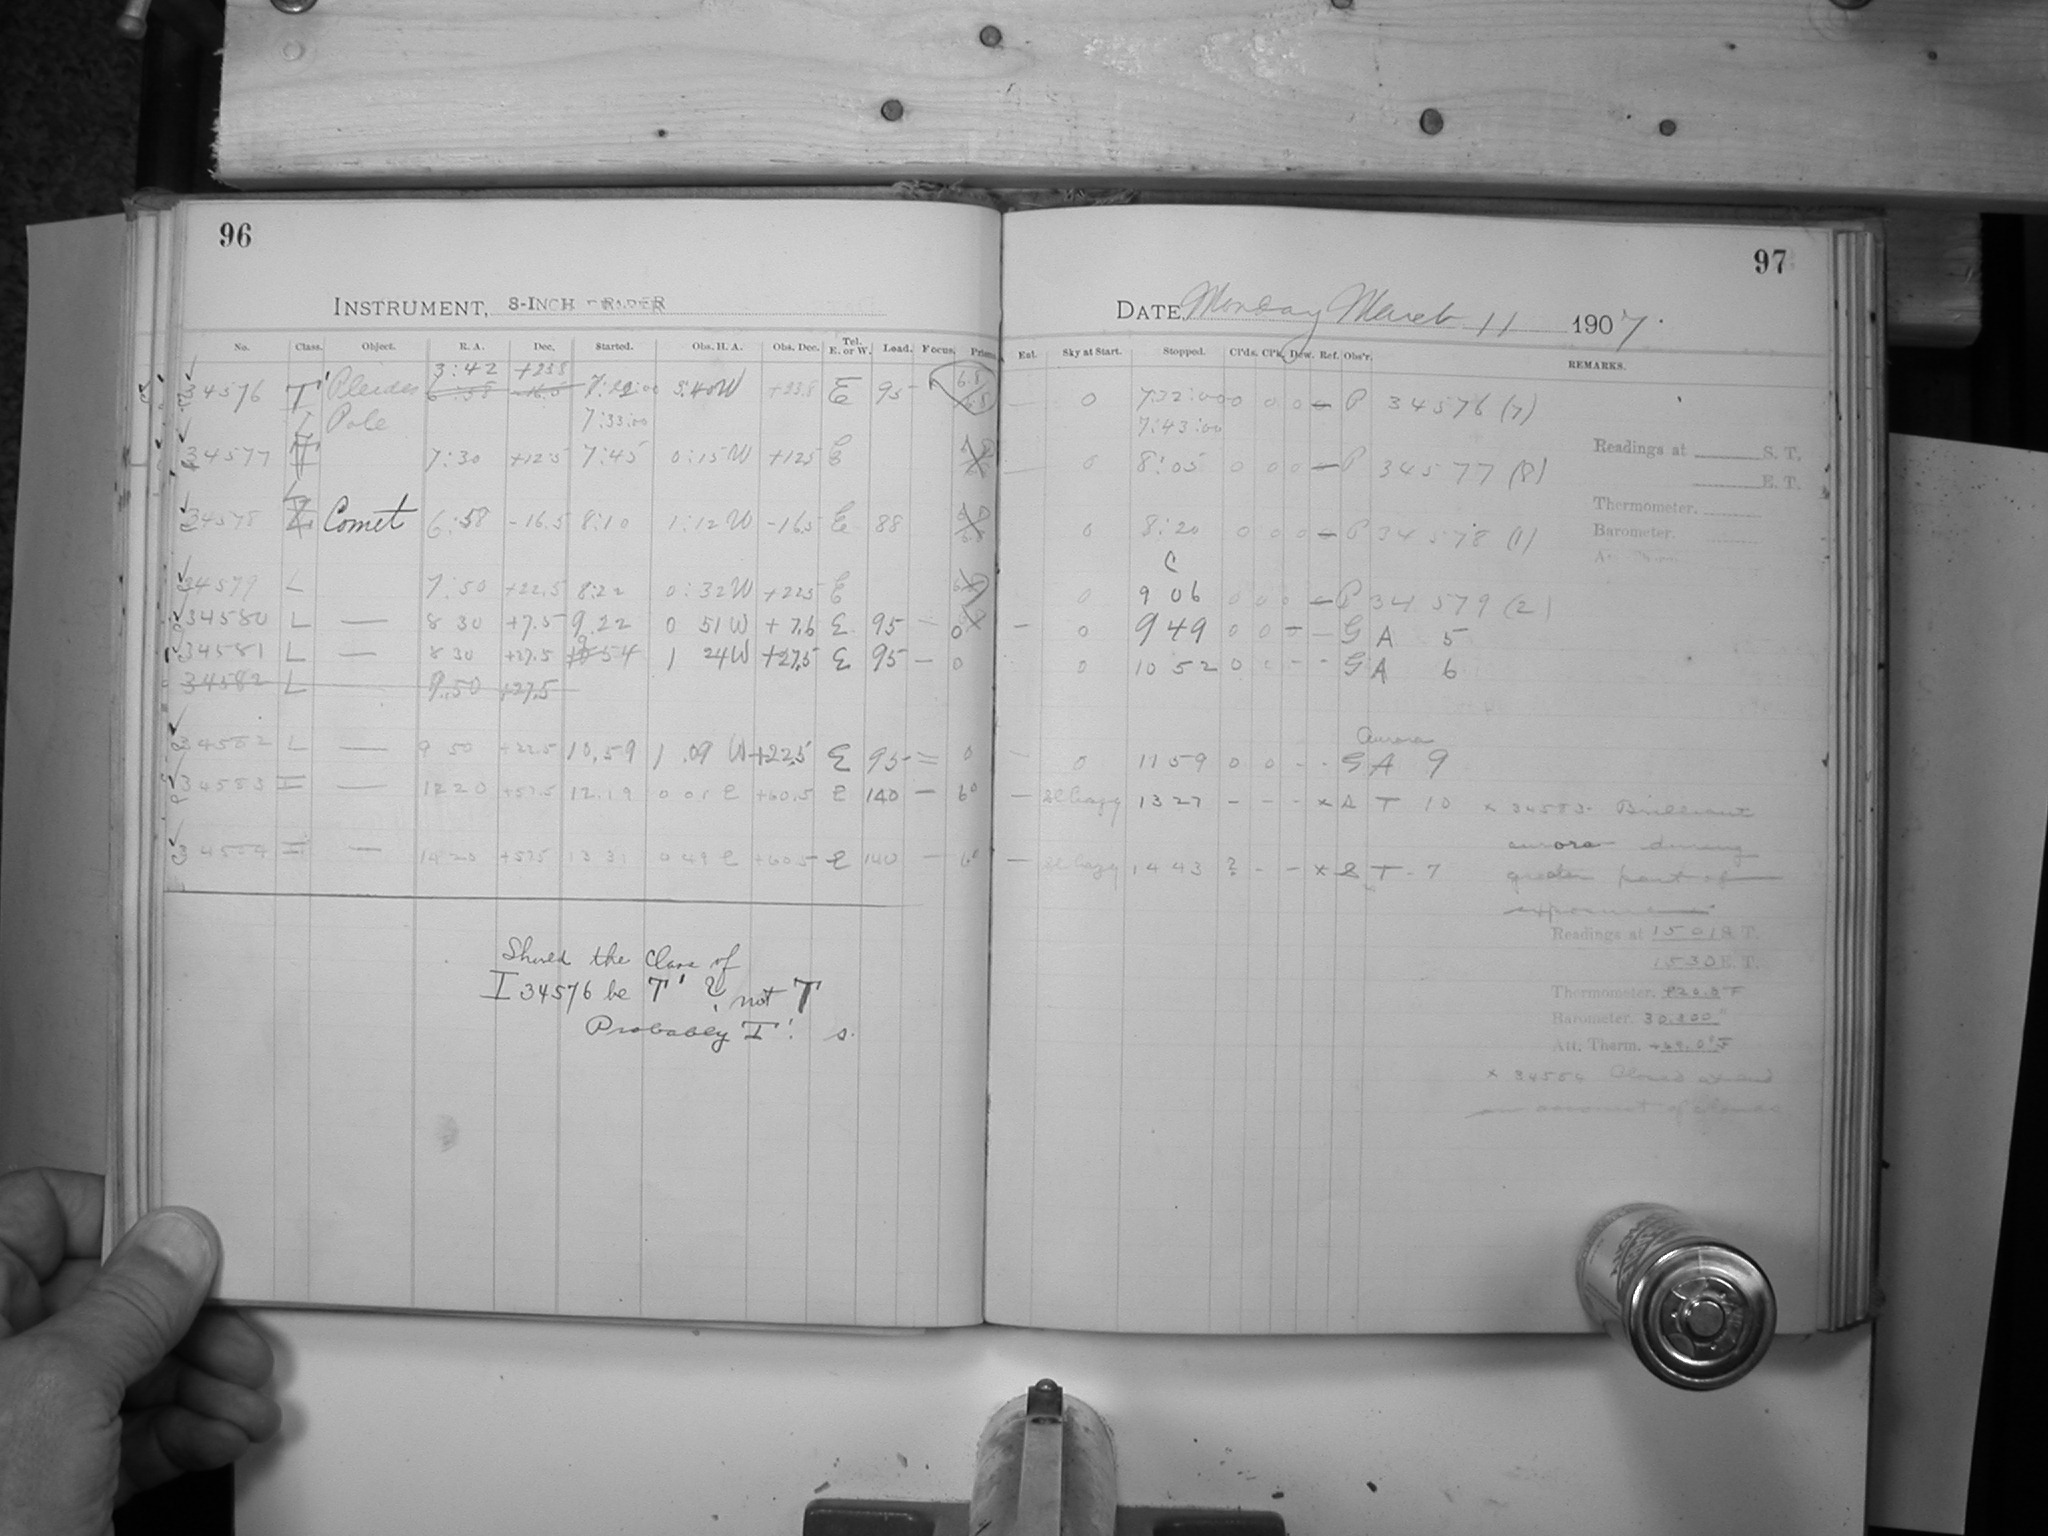 96
INSTRUMENT, 8-INCH DRAPER
No. Class. Object. R. A. Dec. Started. Obs. H. A. Obs. Dec. Tel. E. or W. Load. Focus. Prism.
3:42 +23.8
34576 T' Pleides 6:58 -16.5 7:22:00 3:40W +23.8 E 95
Pole 7:33:00
34577 7:30 +12.5 7:45 0:15W +12.5 E
34578 L Comet 6:58 -16.5 8:10 1:12W -16.5 E 88
34579 L 7:50 +22.5 8:22 0:32W +22.5 E
34580 L — 8 30 +7.5 9.22 0 51W +7.6 E 95 — 0
34581 L — 8 30 +27.5 9 54 1 24W +27.5 E 95 — 0
34582 L 9.50 +27.5
34582 L — 9 50 +22.5 10.59 1 .09 W +22.5 E 95 = 0
34583 I — 12 20 +57.5 12.19 0 01 E +60.5 E 140 — 60
34584 I — 14 20 +57.5 13 31 0 49 E +60.5 E 140 — 60
Should the Class of
I 34576 be T' ? not T
Probably I'. s.
97
DATE, Monday March 11 1907.
Ext. Sky at Start. Stopped. Cl'ds. Cl'k. Dew. Ref. Obs'r. REMARKS.
— 0 7:32:00 0 0 0 — P 34576 (7)
7:43:00
Readings at S. T.
— 0 8:05 0 0 0 — P 34577 (8)
E. T.
Thermometer.
0 8:20 0 0 0 — P 34578 (1)
Barometer.
C
0 9 06 0 0 0 — P 34579 (2)
— 0 9 49 0 0 — — G A 5
0 10 52 0 - - G A 6
Aurora
— 0 11 59 0 0 - - G A 9
— Sl hazy 13 27 - - - x T 10 x 34583 Brilliant
aurora during
— Sl hazy 14 43 ? - - x T - 7 greater part of
exposure
Readings at 15 01 S. T.
15 30 E. T.
Thermometer. +20.0 F
Barometer. 30.300"
Att. Therm. F
x 34584 Closed
on account of clouds